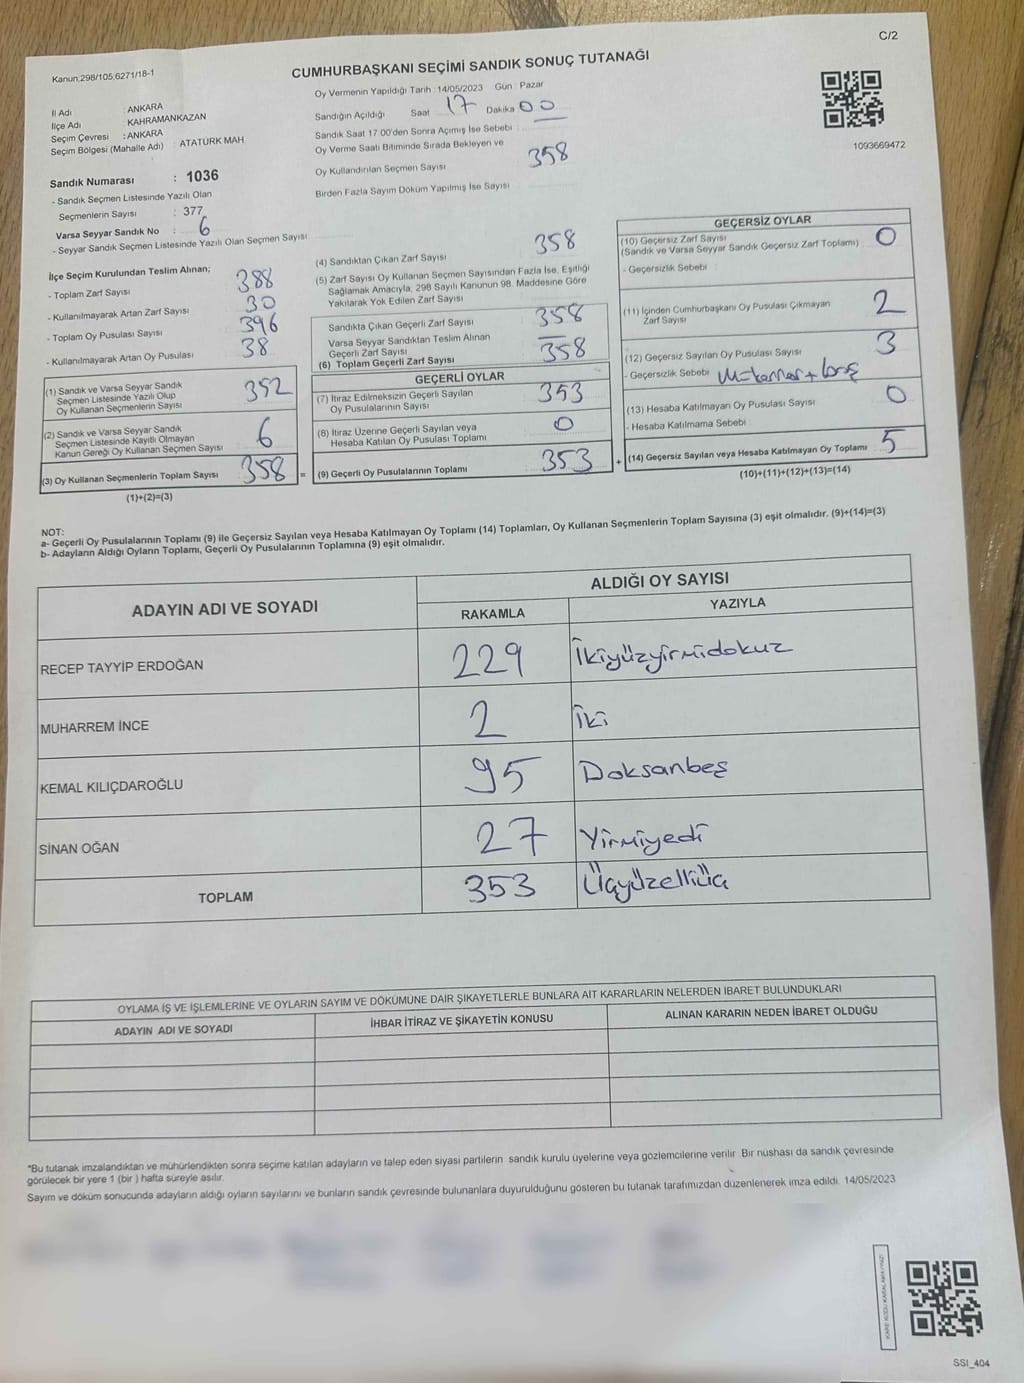 C/2
Kanun:298/105,6271/18-1
CUMHURBAŞKANI SEÇİMİ SANDIK SONUÇ TUTANAĞI
İl Adı : ANKARA
İlçe Adı : KAHRAMANKAZAN
Seçim Çevresi : ANKARA
Seçim Bölgesi (Mahalle Adı) : ATATÜRK MAH
Sandık Numarası : 1036
- Sandık Seçmen Listesinde Yazılı Olan
Seçmenlerin Sayısı : 377
Varsa Seyyar Sandık No : 6
- Seyyar Sandık Seçmen Listesinde Yazılı Olan Seçmen Sayısı
Oy Vermenin Yapıldığı Tarih :14/05/2023 Gün : Pazar
Sandığın Açıldığı Saat 17 Dakika 00
Sandık Saat 17:00'den Sonra Açımış İse Sebebi
Oy Verme Saati Bitiminde Sırada Bekleyen ve
Oy Kullandırılan Seçmen Sayısı 358
Birden Fazla Sayım Döküm Yapılmış İse Sayısı
1093669472
İlçe Seçim Kurulundan Teslim Alınan;
- Toplam Zarf Sayısı 388
- Kullanılmayarak Artan Zarf Sayısı 30
- Toplam Oy Pusulası Sayısı 396
- Kullanılmayarak Artan Oy Pusulası 38
(1) Sandık ve Varsa Seyyar Sandık
Seçmen Listesinde Yazılı Olup
Oy Kullanan Seçmenlerin Sayısı 352
(2) Sandık ve Varsa Seyyar Sandık
Seçmen Listesinde Kayıtlı Olmayan
Kanun Gereği Oy Kullanan Seçmen Sayısı 6
(3) Oy Kullanan Seçmenlerin Toplam Sayısı 358 =
(1)+(2)=(3)
(4) Sandıktan Çıkan Zarf Sayısı 358
(5) Zarf Sayısı Oy Kullanan Seçmen Sayısından Fazla İse, Eşitliği
Sağlamak Amacıyla, 298 Sayılı Kanunun 98. Maddesine Göre
Yakılarak Yok Edilen Zarf Sayısı
Sandıkta Çıkan Geçerli Zarf Sayısı 358
Varsa Seyyar Sandıktan Teslim Alınan
Geçerli Zarf Sayısı —
(6) Toplam Geçerli Zarf Sayısı 358
GEÇERLİ OYLAR
(7) İtiraz Edilmeksizin Geçerli Sayılan
Oy Pusulalarının Sayısı 353
(8) İtiraz Üzerine Geçerli Sayılan veya
Hesaba Katılan Oy Pusulası Toplamı 0
(9) Geçerli Oy Pusulalarının Toplamı 353 +
GEÇERSİZ OYLAR
(10) Geçersiz Zarf Sayısı 0
(Sandık ve Varsa Seyyar Sandık Geçersiz Zarf Toplamı)
- Geçersizlik Sebebi
(11) İçinden Cumhurbaşkanı Oy Pusulası Çıkmayan
Zarf Sayısı 2
(12) Geçersiz Sayılan Oy Pusulası Sayısı 3
- Geçersizlik Sebebi
(13) Hesaba Katılmayan Oy Pusulası Sayısı 0
- Hesaba Katılmama Sebebi
(14) Geçersiz Sayılan veya Hesaba Katılmayan Oy Toplamı 5
(10)+(11)+(12)+(13)=(14)
NOT:
a- Geçerli Oy Pusulalarının Toplamı (9) ile Geçersiz Sayılan veya Hesaba Katılmayan Oy Toplamı (14) Toplamları, Oy Kullanan Seçmenlerin Toplam Sayısına (3) eşit olmalıdır. (9)+(14)=(3)
b- Adayların Aldığı Oyların Toplamı, Geçerli Oy Pusulalarının Toplamına (9) eşit olmalıdır.
ADAYIN ADI VE SOYADI
ALDIĞI OY SAYISI
RAKAMLA YAZIYLA
RECEP TAYYİP ERDOĞAN 229 İkiyüzyirmidokuz
MUHARREM İNCE 2 İki
KEMAL KILIÇDAROĞLU 95 Doksanbeş
SİNAN OĞAN 27 Yirmiyedi
TOPLAM 353 Üçyüzelliüç
OYLAMA İŞ VE İŞLEMLERİNE VE OYLARIN SAYIM VE DÖKÜMÜNE DAİR ŞİKAYETLERLE BUNLARA AİT KARARLARIN NELERDEN İBARET BULUNDUKLARI
ADAYIN ADI VE SOYADI İHBAR İTİRAZ VE ŞİKAYETİN KONUSU ALINAN KARARIN NEDEN İBARET OLDUĞU
*Bu tutanak imzalandıktan ve mühürlendikten sonra seçime katılan adayların ve talep eden siyasi partilerin sandık kurulu üyelerine veya gözlemcilerine verilir. Bir nüshası da sandık çevresinde
görülecek bir yere 1 (bir ) hafta süreyle asılır.
Sayım ve döküm sonucunda adayların aldığı oyların sayılarını ve bunların sandık çevresinde bulunanlara duyurulduğunu gösteren bu tutanak tarafımızdan düzenlenerek imza edildi. 14/05/2023
SSI_404